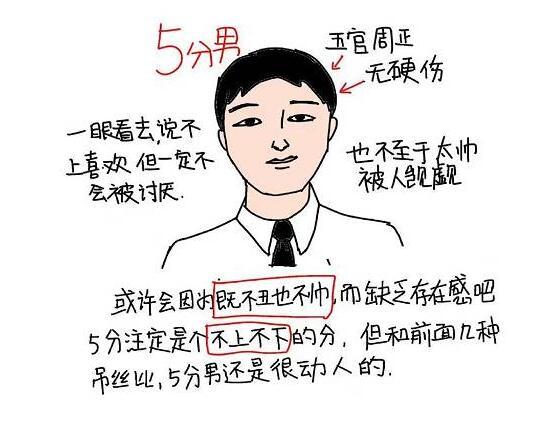 5分男
五官周正
无硬伤
一眼看去,说不
上喜欢 但一定不
会被讨厌.
也不至于太帅
被人觊觎
或许会因为既不丑也不帅,而缺乏存在感吧
5分注定是个不上不下的分, 但和前面几种
吊丝比,5分男还是很动人的.